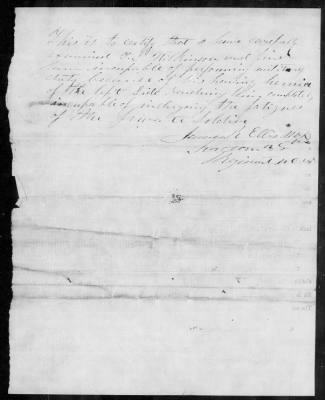 This is to certify that I have carefully
examined Wilkinson and find
him incapable of performing military
duty because of his having hernia
of the left Side rendering him completely
incapable of undergoing the fatigues
of the Soldier
Ellis
Surgeon
Regiment